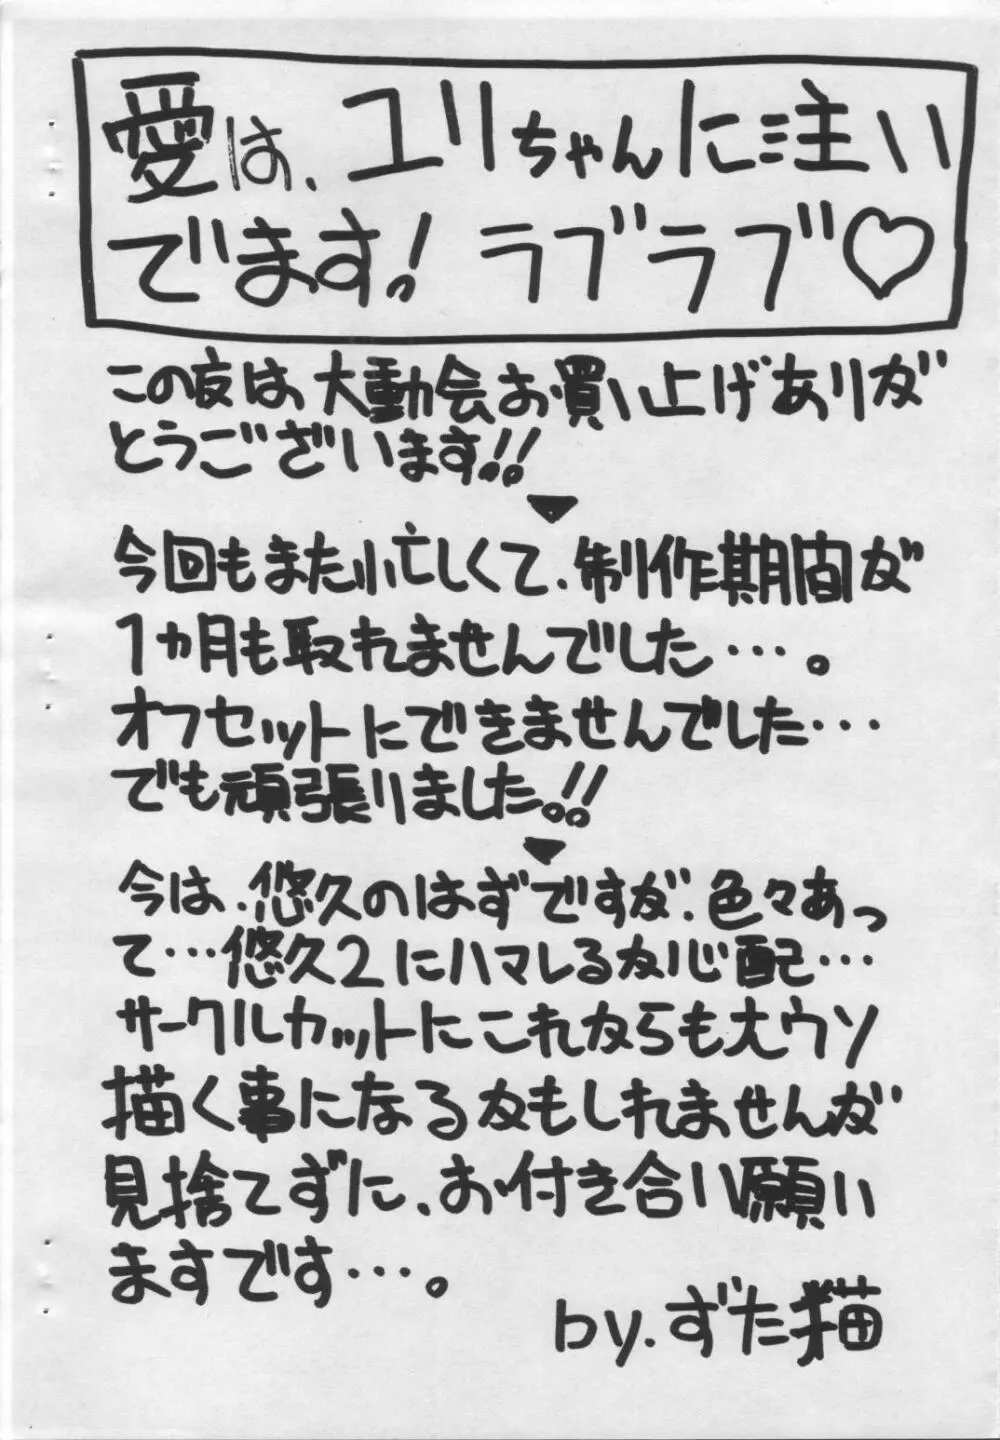 愛は、ユリちゃんに注い
でます! ラブラブ♡
この度は大動会お買い上げありが
とうございます!!
今回もまた忙しくて、制作期間が
1ヵ月も取れませんでした…。
オフセットにできませんでした…
でも頑張りました!!
今は、悠久のはずですが、色々あっ
て…悠久2にハマレるか心配…
サークルカットにこれからも大ウソ
描く事になるかもしれませんが
見捨てずに、お付き合い願い
ますです…。
by.ずた猫